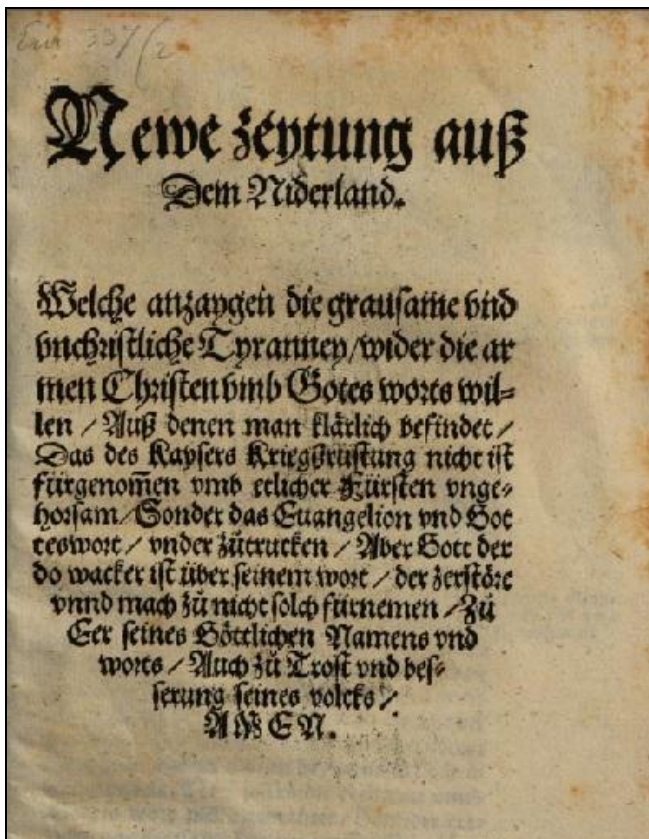 337/2
Newe zeytung auß
Dem Niderland.
Welche anzaygen die grausame vnd
vnchristliche Tyranney/wider die ar
men Christen vmb Gotes worts wil=
len / Auß denen man klärlich befindet /
Das des Kaysers Kriegßrüstung nicht ist
fürgenom̄en vmb etlicher Fürsten vnge=
horsam/Sonder das Euangelion vnd Got
teswort / vnder zůtrucken / Aber Gott der
do wacker ist über seinem wort / der zerstöre
vnnd mach zů nicht solch fürnemen / Zů
Eer seines Göttlichen Namens vnd
worts / Auch zů Trost vnd bes=
serung seines volcks /
AMEN.